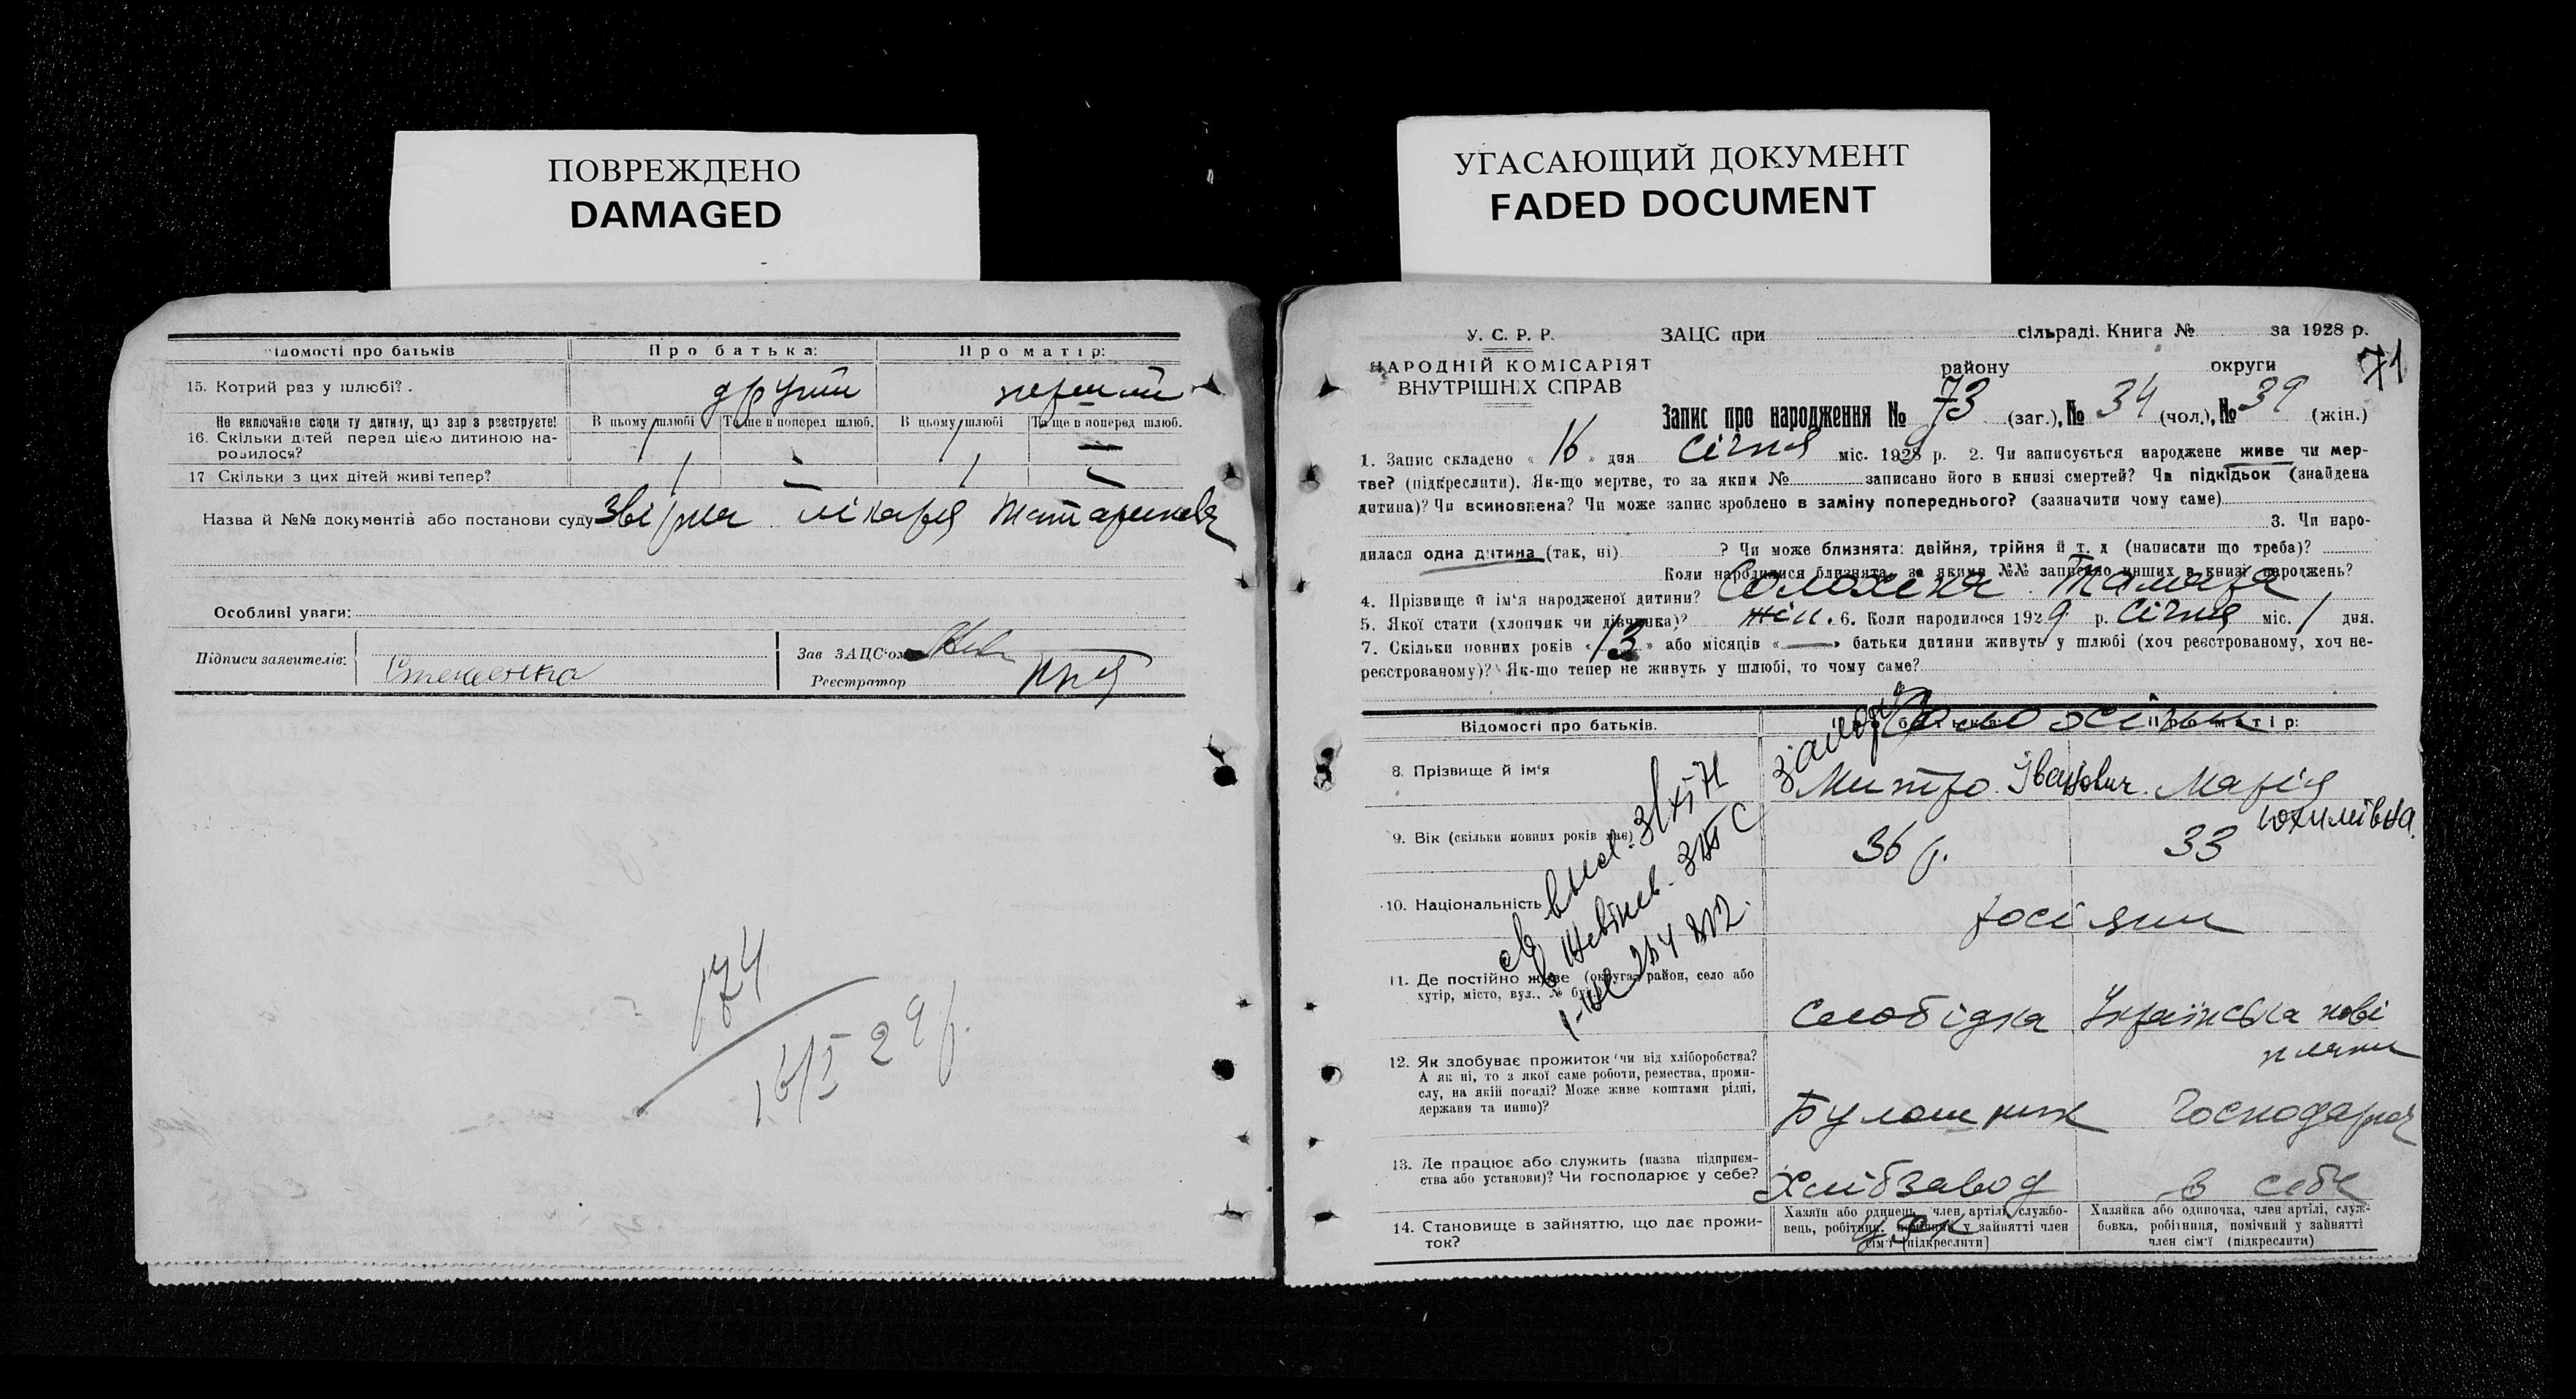 ПОВРЕЖДЕНО
DAMAGED
ідомості про батьків
Про батька:
Про матір:
15. Котрий раз у шлюбі?
другий
перший
Не включайте сюди ту дитину, що зараз реєструєте!
16. Скільки дітей перед цією дитиною на-
родилося?
В цьому шлюбі
Та ще в поперед шлюб.
В цьому шлюбі
Та ще в поперед шлюб.
1
1
—
17 Скільки з цих дітей живі тепер?
1
—
1
—
Назва й №№ документів або постанови суду
лікаря
Особливі уваги:
Підписи заявителів:
Зав ЗАЦС'ом
Реєстратор
174
16/I 29 р.
УГАСАЮЩИЙ ДОКУМЕНТ
FADED DOCUMENT
У. С. Р. Р.
НАРОДНІЙ КОМІСАРІЯТ
ВНУТРІШНІХ СПРАВ
ЗАЦС при сільраді. Книга № за 1928 р.
району округи
71
Запис про народження № 73 (заг.), № 34 (чол.), № 39 (жін.)
1. Запис складено « 16 » дня січня міс. 1929 р. 2. Чи записується народжене живе чи мер-
тве? (підкреслити). Як-що мертве, то за яким № записано його в книзі смертей? Чи підкідьок (знайдена
дитина)? Чи всиновлена? Чи може запис зроблено в заміну попереднього? (зазначити чому саме)
3. Чи наро-
дилася одна дитина (так, ні) ? Чи може близнята: двійня, трійня й т. д (написати що треба)?
Коли народилися близнята, за якими №№ записано инших в книзі народжень?
4. Прізвище й ім'я народженої дитини? Тамара
5. Якої стати (хлопчик чи дівчинка)? жін. 6. Коли народилося 1929 р. січня міс. 1 дня.
7. Скільки повних років « 13 » або місяців « — » батьки дитини живуть у шлюбі (хоч реєстрованому, хоч не-
реєстрованому)? Як-що тепер не живуть у шлюбі, то чому саме?
Відомості про батьків.
Про батька:
Про матір:
8. Прізвище й ім'я
Митро Іванович
Марія
Юхимівна
9. Вік (скільки повних років має)
36 р.
33
10. Національність
росіяни
11. Де постійно живе (округа, район, село або
хутір, місто, вул., № буд.)
Слобідка Українська нові
пляни
12. Як здобуває прожиток чи від хліборобства?
А як ні, то з якої саме роботи, ремества, проми-
слу, на якій посаді? Може живе коштами рідні,
держави та инше)?
Булошник
Господарка
13. Де працює або служить (назва підприєм-
ства або установи)? Чи господарює у себе?
Хлібзавод
в себе
14. Становище в зайняттю, що дає прожи-
ток?
Хазяїн або одинець, член артілі, службо-
вець, робітник, помічний у зайнятті член
сім'ї (підкреслити)
Хазяйка або одиночка, член артілі, служ-
бовка, робітниця, помічний у зайнятті
член сім'ї (підкреслити)